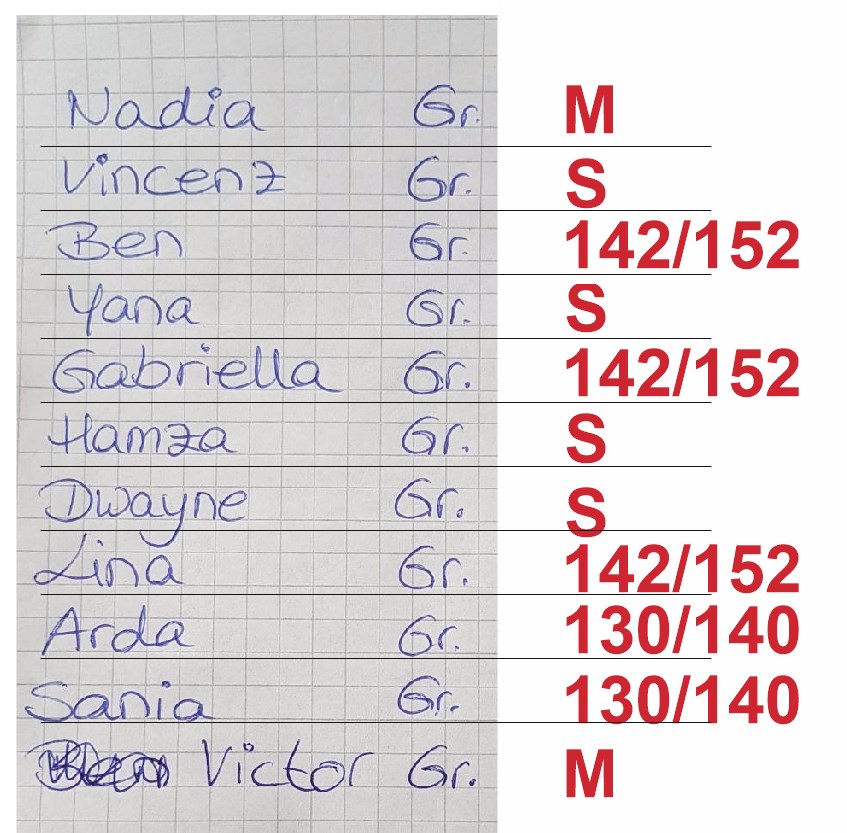 Nadia Gr. M
Vincenz Gr. S
Ben Gr. 142/152
Yana Gr. S
Gabriella Gr. 142/152
Hamza Gr. S
Dwayne Gr. S
Lina Gr. 142/152
Arda Gr. 130/140
Sania Gr. 130/140
Victor Gr. M